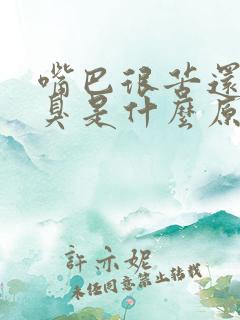 嘴巴很苦還
臭是什麼原
許亦妮
未經同意禁止轉載